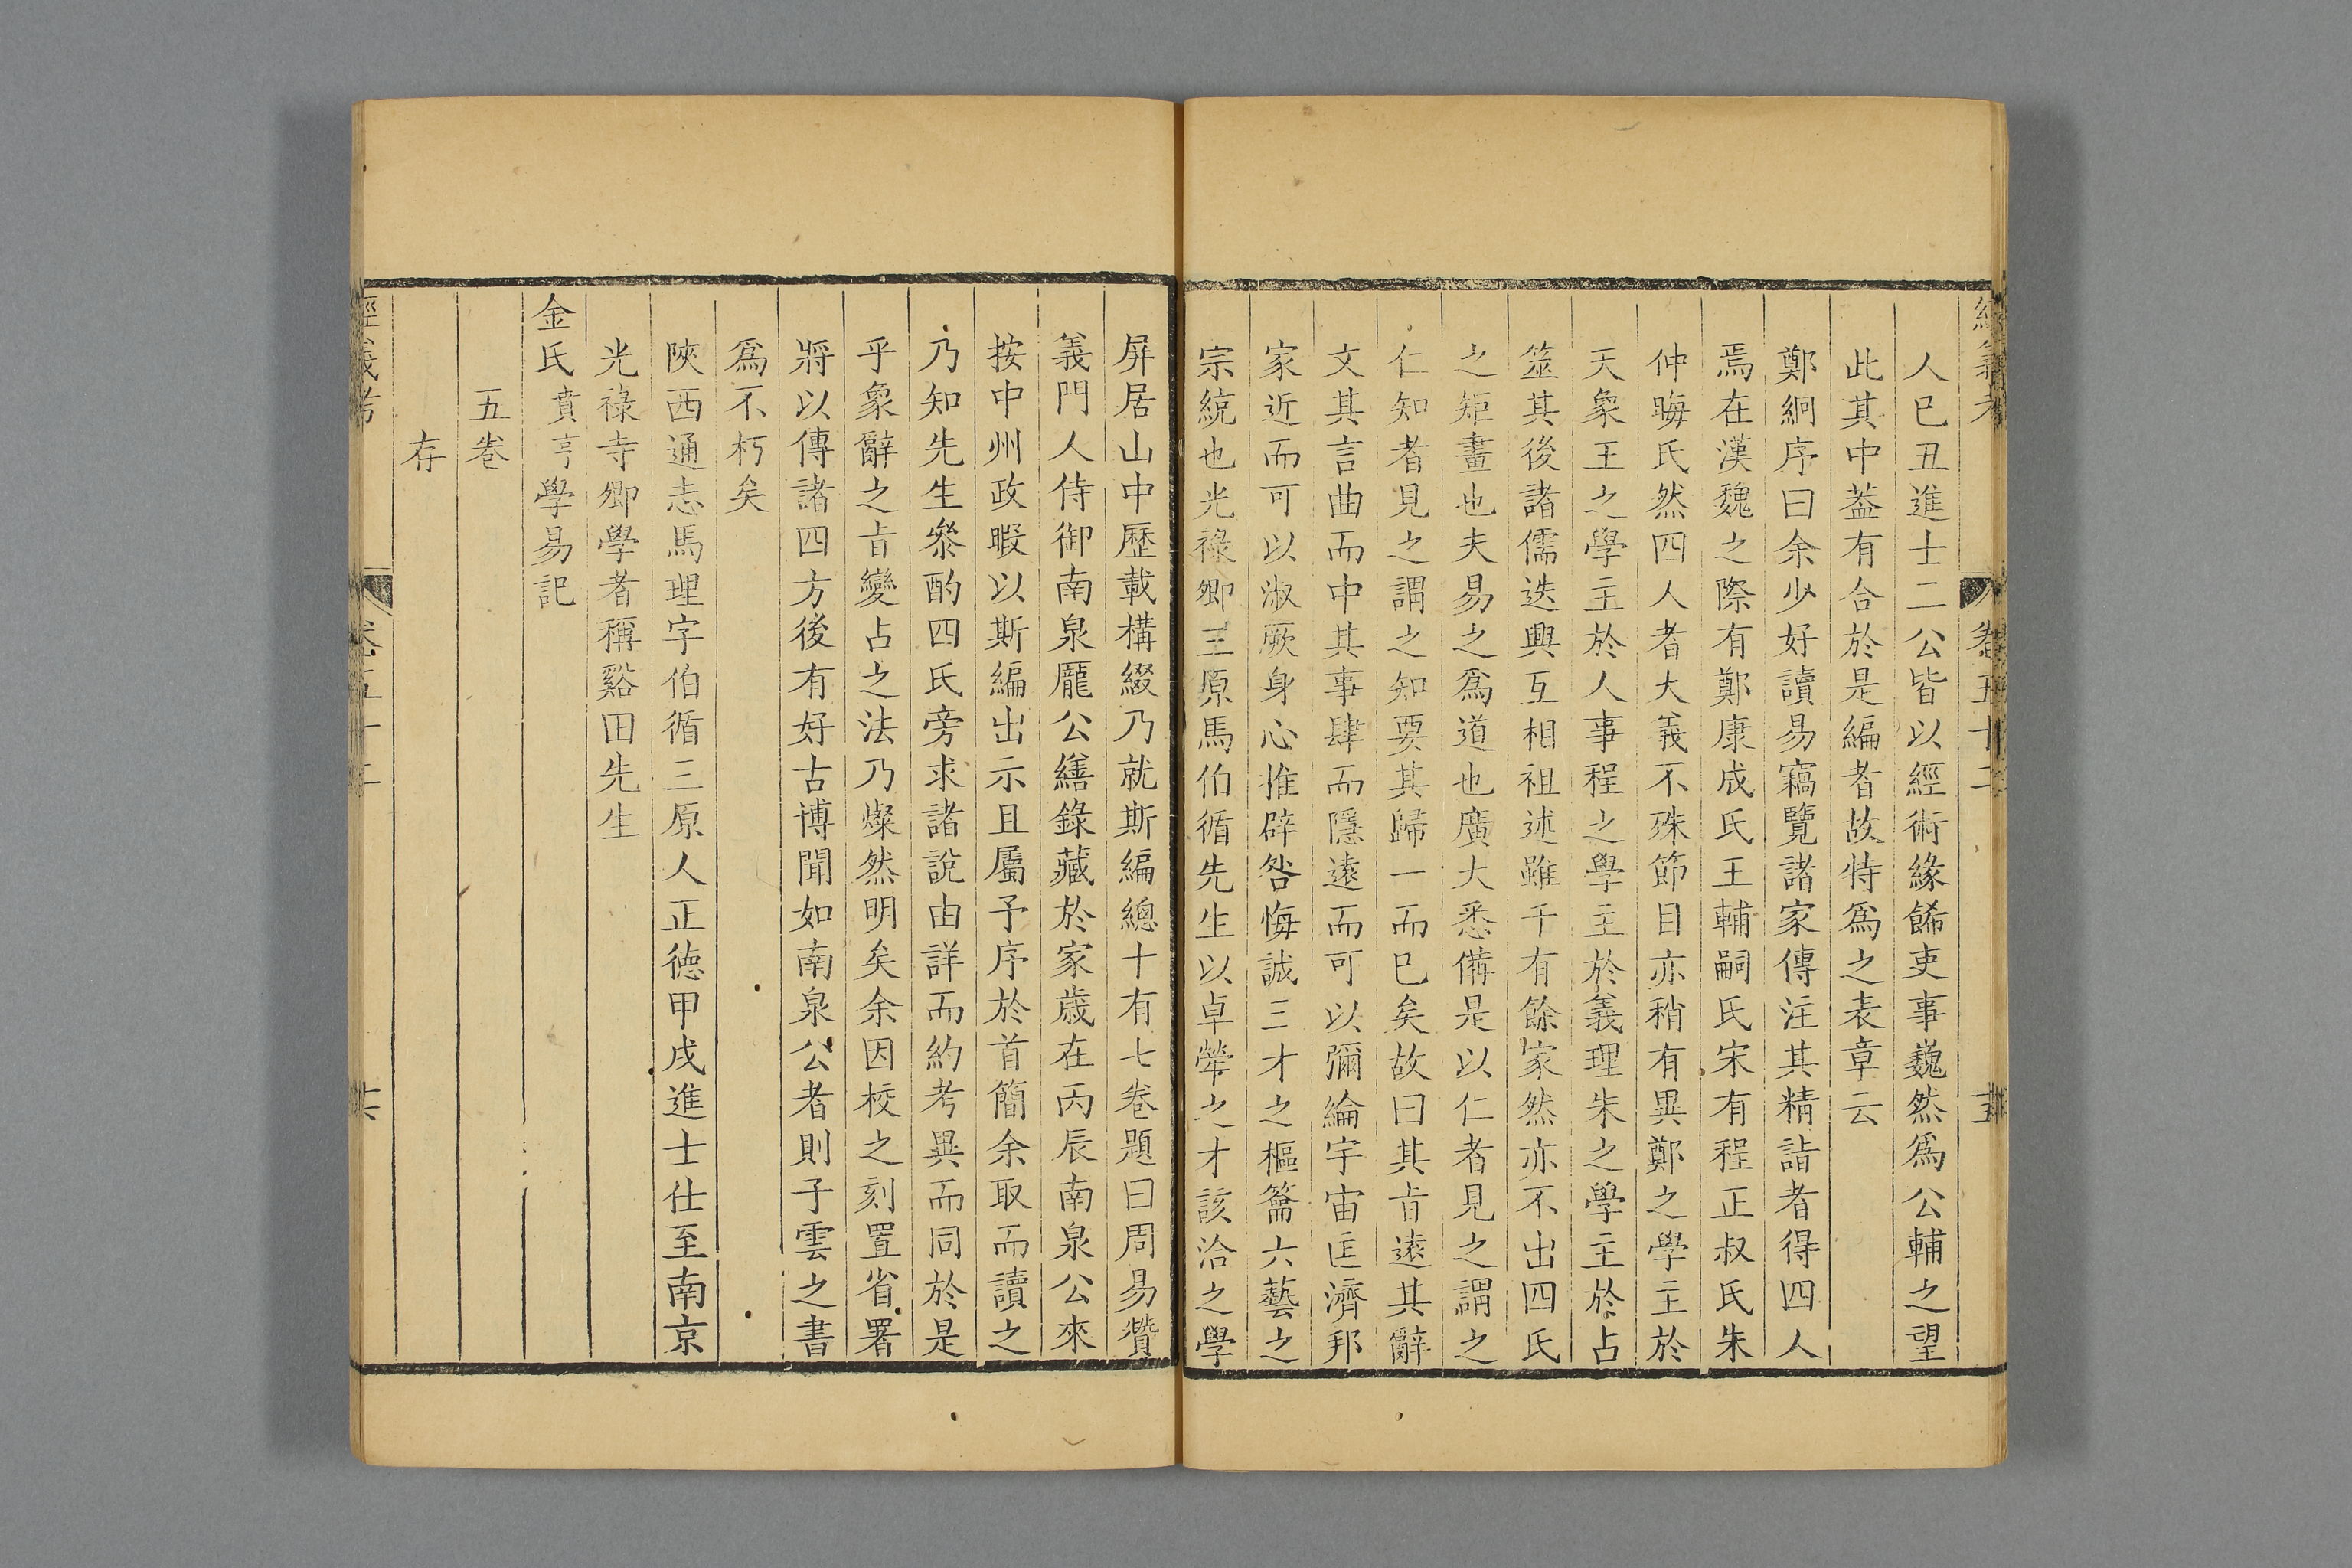 經義考 卷五十二 十五
人巳丑進士二公皆以經術緣餙吏事巍然爲公輔之望
此其中葢有合於是編者故特爲之表章云
鄭絅序曰余少好讀易竊覽諸家傳注其精詣者得四人
焉在漢魏之際有鄭康成氏王輔嗣氏宋有程正叔氏朱
仲晦氏然四人者大義不殊節目亦稍有異鄭之學主於
天象王之學主於人事程之學主於義理朱之學主於占
筮其後諸儒迭興互相祖述雖千有餘家然亦不出四氏
之矩畫也夫易之爲道也廣大悉備是以仁者見之謂之
仁知者見之謂之知要其歸一而巳矣故曰其㫖遠其辭
文其言曲而中其事肆而隱遠而可以彌綸宇宙匡濟邦
家近而可以淑厥身心推辟咎悔誠三才之樞籥六藝之
宗統也光祿卿三原馬伯循先生以卓犖之才該洽之學
屏居山中歷載構綴乃就斯編總十有七卷題曰周易贊
義門人侍御南泉龎公繕錄藏於家歲在丙辰南泉公來
按中州政暇以斯編出示且屬予序於首簡余取而讀之
乃知先生叅酌四氏旁求諸說由詳而約考異而同於是
乎象辭之㫖變占之法乃燦然明矣余因校之刻置省署
將以傳諸四方後有好古博聞如南泉公者則子雲之書
爲不朽矣
陝西通志馬理字伯循三原人正德甲戌進士仕至南京
光祿寺卿學者稱谿田先生
金氏賁亨學易記
五卷
存
經義考 卷五十二 十六